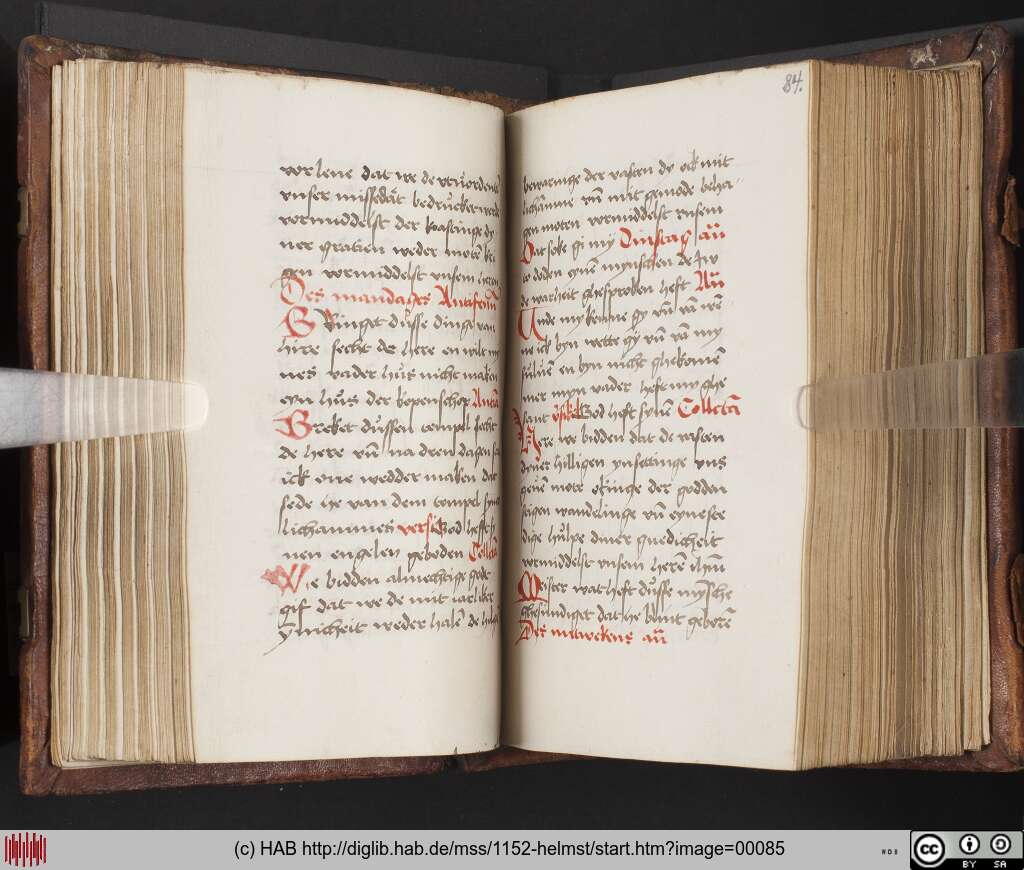 vnser missedat bedrucket werde
vormiddelst der kastinge dy
ner gratien weder mote kri
gen vormiddelst vnsem heren
Des mandages Antifen
Bringet dusse dinge van
hire secht de here en wilt my
nes vader hus nicht maken
eyn hus der kopenschop Antif
Breket dussen tempel secht
de here vn̄ na dren dagen sal
ick one wedder maken dat
sede he van dem tempel synes
lichammes versi God heft sy
nen engelen geboden Collecta
Wie bidden almechtige gode
gif dat we de mit iarliker
ynicheit weder halē de hilgē
84.
bewaringe der vasten dy ock mit
lichamme vn̄ mit gemode beha
gen moten vormiddelst vnsem
Dat soke gi my Dinstag an̄
to doden eynē mynschen de iw
de warheit ghesproken heft An̄
Vnde my kenne gy vn̄ van wē
ne ick byn wette gy vn̄ vā my
suluē en byn nicht ghekomē
mer myn vader heft my ghe
sant God heft synē Collecta
Here we bidden dat de vasten
dyner hilligen ynsettinge vns
geuē mote okinge der godden
stigen wandelinge vn̄ eynstee
dige hulpe diner gnedicheit
vormiddelst vnsem herē ihm
Meister wat heft dusse mynsche
ghesundiget dat he blint geborē
Des mitwekens an̄
(c) HAB http://diglib.hab.de/mss/1152-helmst/start.htm?image=00085
WDB
cc
BY SA